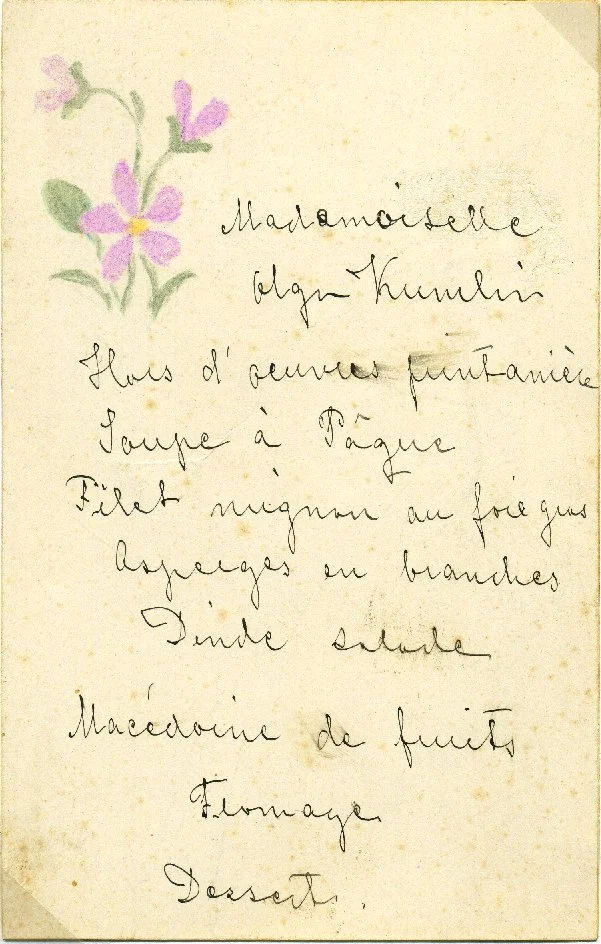 Mademoiselle
Olga Kumlin
Hors d'oeuvres printanière
Soupe à Pâque
Filet mignon au foie gras
Asperges en branches
Dinde salade
Macédoine de fruits
Fromage
Desserts.